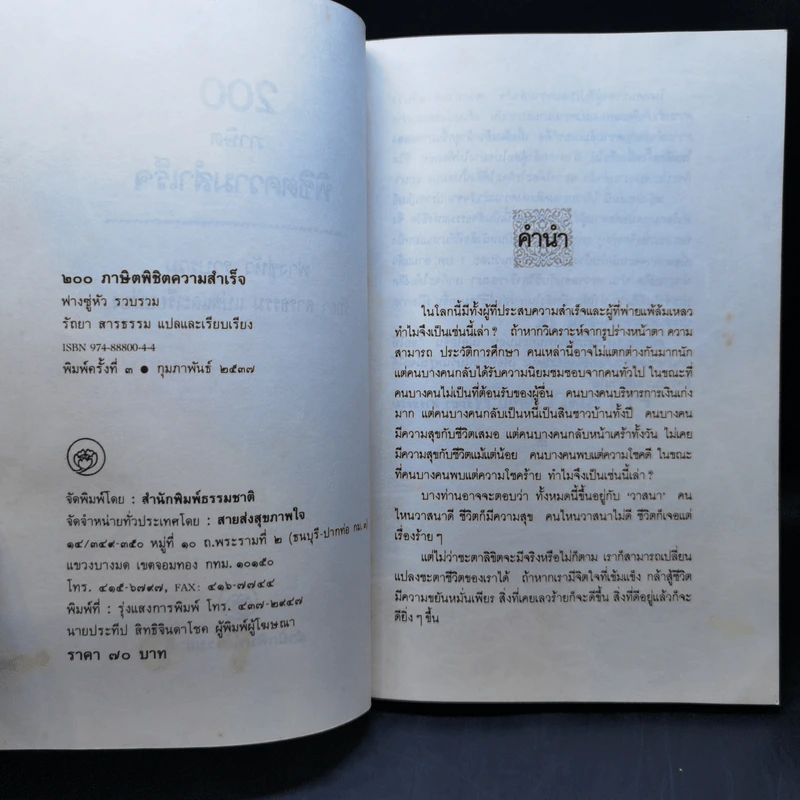 ๒๐๐ ภาษิตพิชิตความสำเร็จ
ฟางซู่หัว รวบรวม
รัถยา สารธรรม แปลและเรียบเรียง
ISBN 974-88800-4-4
พิมพ์ครั้งที่ ๓ ● กุมภาพันธ์ ๒๕๓๗
จัดพิมพ์โดย : สำนักพิมพ์ธรรมชาติ
จัดจำหน่ายทั่วประเทศโดย : สายส่งสุขภาพใจ
๑๔/๓๔๙-๓๕๐ หมู่ที่ ๑๐ ถ.พระรามที่ ๒ (ธนบุรี-ปากท่อ กม.๓)
แขวงบางมด เขตจอมทอง กทม. ๑๐๑๕๐
โทร. ๔๑๕-๖๗๙๗, FAX: ๔๑๖-๗๗๔๔
พิมพ์ที่ : รุ่งแสงการพิมพ์ โทร. ๔๓๗-๒๙๔๗
นายประทีป สิทธิจินดาโชค ผู้พิมพ์ผู้โฆษณา
ราคา ๗๐ บาท
คำนำ
ในโลกนี้มีทั้งผู้ที่ประสบความสำเร็จและผู้ที่พ่ายแพ้ล้มเหลว
ทำไมจึงเป็นเช่นนี้เล่า ? ถ้าหากวิเคราะห์จากรูปร่างหน้าตา ความ
สามารถ ประวัติการศึกษา คนเหล่านี้อาจไม่แตกต่างกันมากนัก
แต่คนบางคนกลับได้รับความนิยมชมชอบจากคนทั่วไป ในขณะที่
คนบางคนไม่เป็นที่ต้อนรับของผู้อื่น คนบางคนบริหารการเงินเก่ง
มาก แต่คนบางคนกลับเป็นหนี้เป็นสินชาวบ้านทั้งปี คนบางคน
มีความสุขกับชีวิตเสมอ แต่คนบางคนกลับหน้าเศร้าทั้งวัน ไม่เคย
มีความสุขกับชีวิตแม้แต่น้อย คนบางคนพบแต่ความโชคดี ในขณะ
ที่คนบางคนพบแต่ความโชคร้าย ทำไมจึงเป็นเช่นนี้เล่า ?
บางท่านอาจจะตอบว่า ทั้งหมดนี้ขึ้นอยู่กับ 'วาสนา' คน
ไหนวาสนาดี ชีวิตก็มีความสุข คนไหนวาสนาไม่ดี ชีวิตก็เจอแต่
เรื่องร้าย ๆ
แต่ไม่ว่าชะตาลิขิตจะมีจริงหรือไม่ก็ตาม เราก็สามารถเปลี่ยน
แปลงชะตาชีวิตของเราได้ ถ้าหากเรามีจิตใจที่เข้มแข็ง กล้าสู้ชีวิต
มีความขยันหมั่นเพียร สิ่งที่เคยเลวร้ายก็จะดีขึ้น สิ่งที่ดีอยู่แล้วก็จะ
ดียิ่ง ๆ ขึ้น